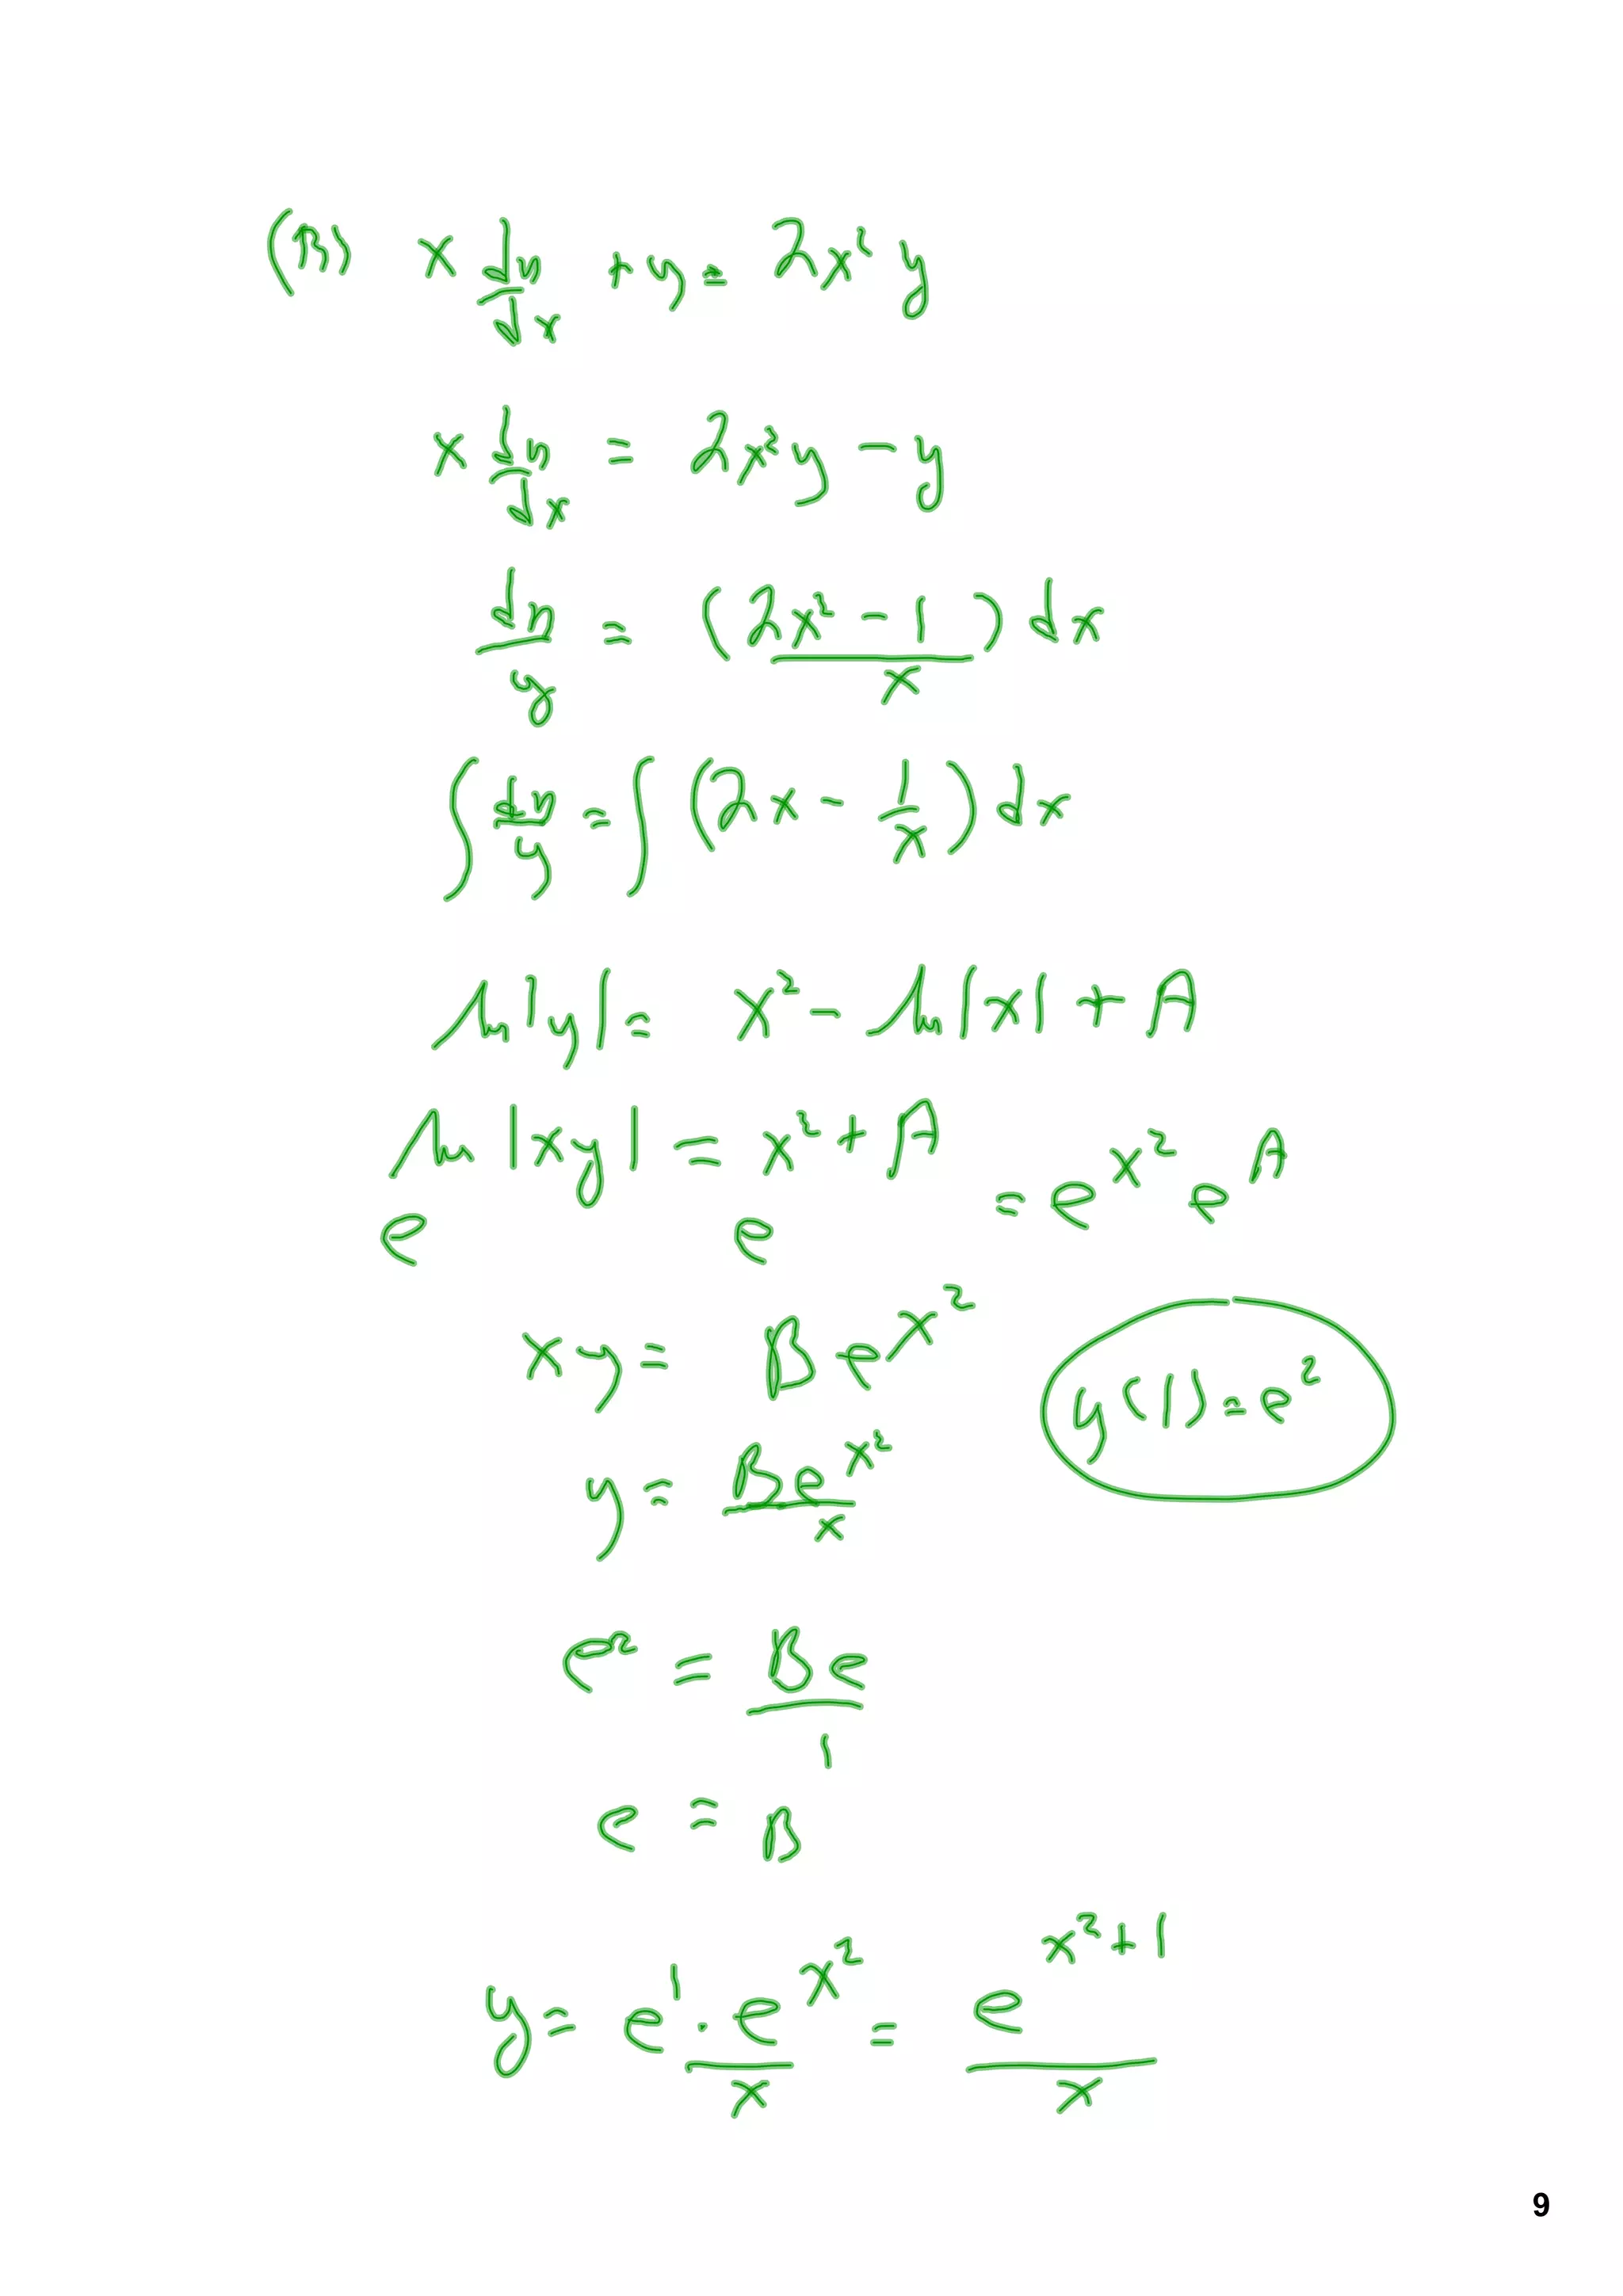 (m) x dy/dx + y = 2x² y
x dy/dx = 2x² y − y
dy/y = (2x² − 1)/x dx
∫ dy/y = ∫ (2x − 1/x) dx
ln|y| = x² − ln|x| + A
e^(ln|xy|) = e^(x² + A) = e^(x²) e^A
xy = B e^(x²)
y(1) = e²
y = Be^(x²)/x
e² = Be/1
e = B
y = e¹ · e^(x²)/x = e^(x²+1)/x
9